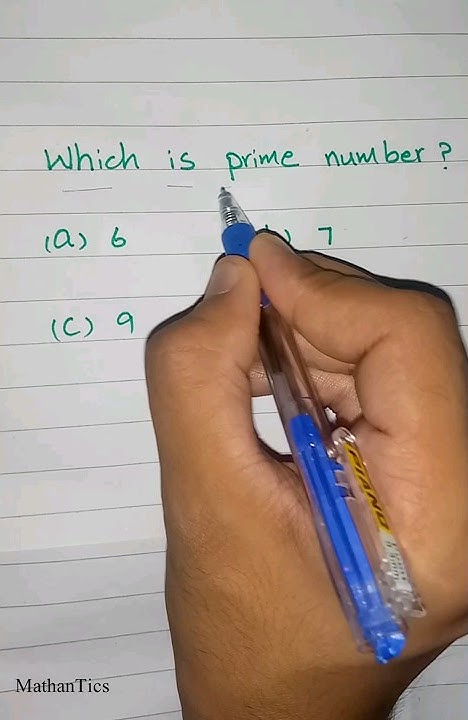 Which is prime number?
(a) 6 ) 7
(C) 9
PIANO
MathanTics